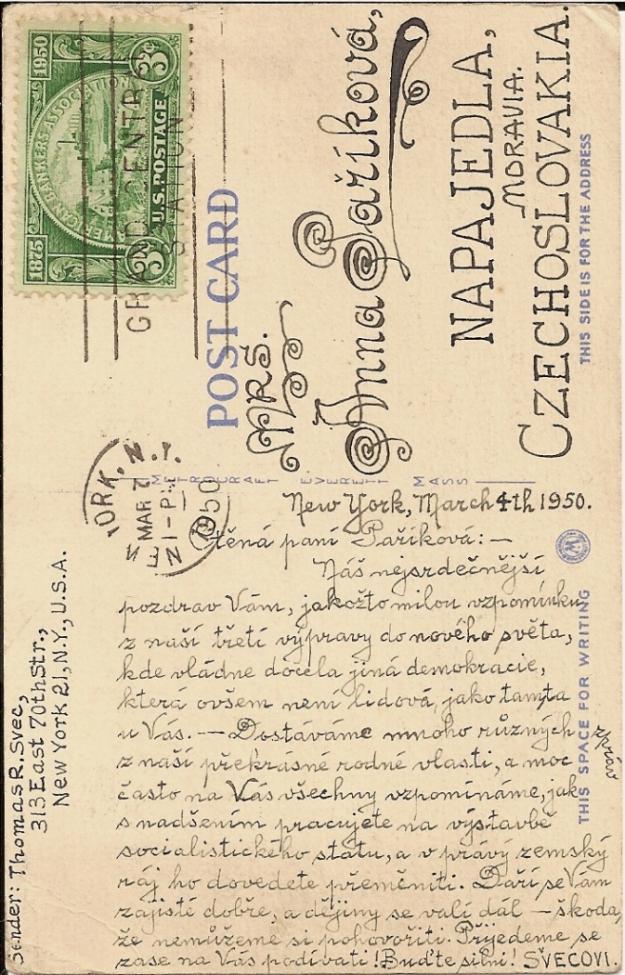 1875
1950
AMERICAN BANKERS ASSOCIATION
3¢
3¢
U.S. POSTAGE
GRAND CENTRAL
STATION
YORK, N.Y.
MAR 7
1-PM
1950
POST CARD
MRS.
Anna Paříková,
NAPAJEDLA,
MORAVIA.
CZECHOSLOVAKIA.
THIS SIDE IS FOR THE ADDRESS
METROCRAFT EVERETT MASS
Sender: Thomas R. Svec,
313 East 70th Str.,
New York 21, N.Y., U.S.A.
New York, March 4th 1950.
Ctěná paní Paříková: —
Náš nejsrdečnější
pozdrav Vám, jakožto milou vzpomínku
z naší třetí výpravy do nového světa,
kde vládne docela jiná demokracie,
která ovšem není lidová, jako tamta
u Vás. — Dostáváme mnoho různých zpráv
z naší překrásné rodné vlasti, a moc
často na Vás všechny vzpomínáme, jak
s nadšením pracujete na výstavbě
socialistického státu, a v pravý zemský
ráj ho dovedete přeměniti. Daří se Vám
zajisté dobře, a dějiny se valí dál — škoda,
že nemůžeme si pohovořiti. Přijedeme se
zase na Vás podívati! Buďte silní! ŠVECOVI.
THIS SPACE FOR WRITING